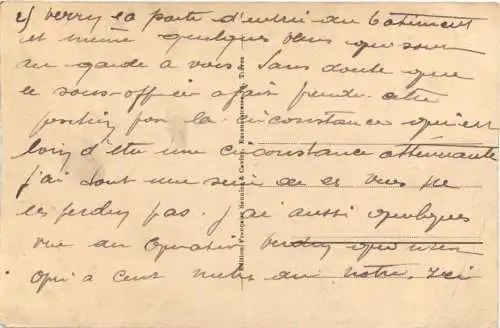 2) verrez la porte d'entrée du bâtiment
et même quelques uns qui sont
au garde à vous. Sans doute que
le sous-officier a fait prendre cette
position pour la circonstance qui est
loin d'être une circonstance atténuante
j'ai dont une série de ces vues ne
les perdez pas. J'ai aussi quelques
vue du quartier Verdun que
qui a cent mètres du notre. Ici
Edition Française Hennings &